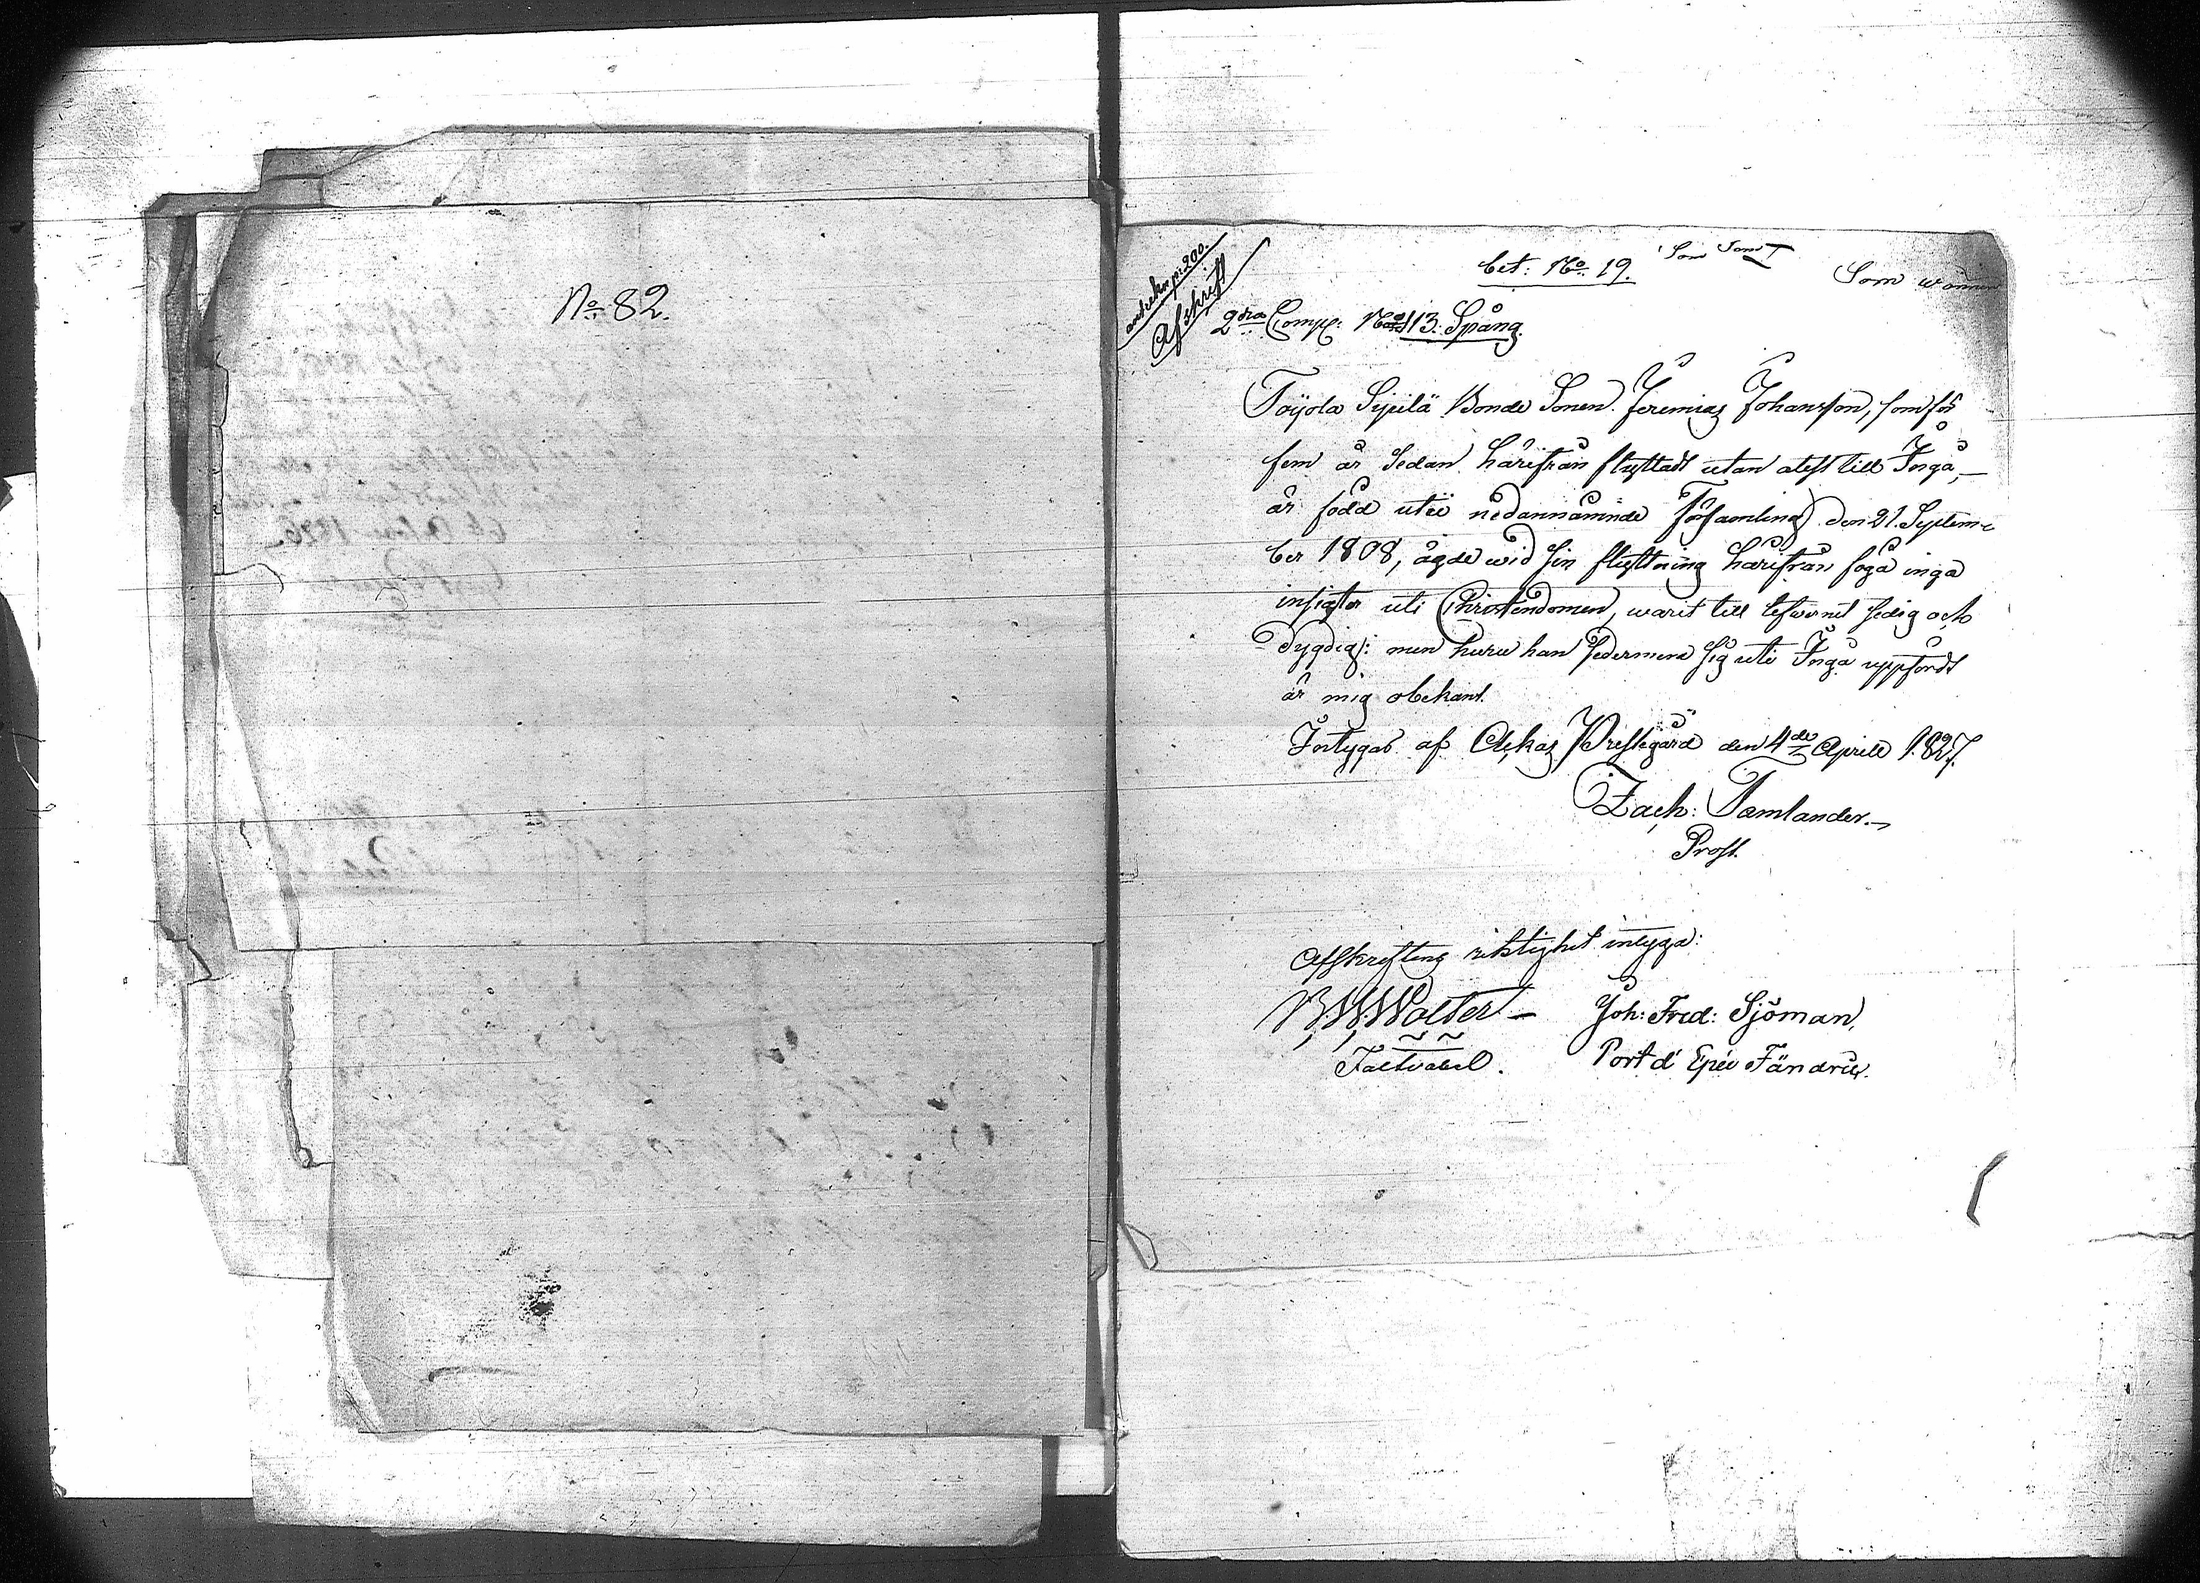 No 82.
Afskrift
bet: No 19.
2dra Comp: No 113. Spång.
Toyola Sipilä Bonde Sonen Jeremias Johansson, som för
fem år sedan härifrån flyttadt utan atest till Ingå,
är född uti nedannämnde Församling den 21. Septem-
ber 1808, ägde wid sin flyttning härifrån föga inga
insigter uti Christendomen, warit till lefwernet sedig och
dygdig: men huru han sedermera sig uti Ingå uppfördt
är mig obekant.
Intygas af Prestegård den 4de Aprill 1827.
Zach: Tamlander.
Prost.
Afskriftens riktighet intyga:
Walter Joh: Fred: Sjöman,
Faltvabel. Port d' Epée Fändrick.